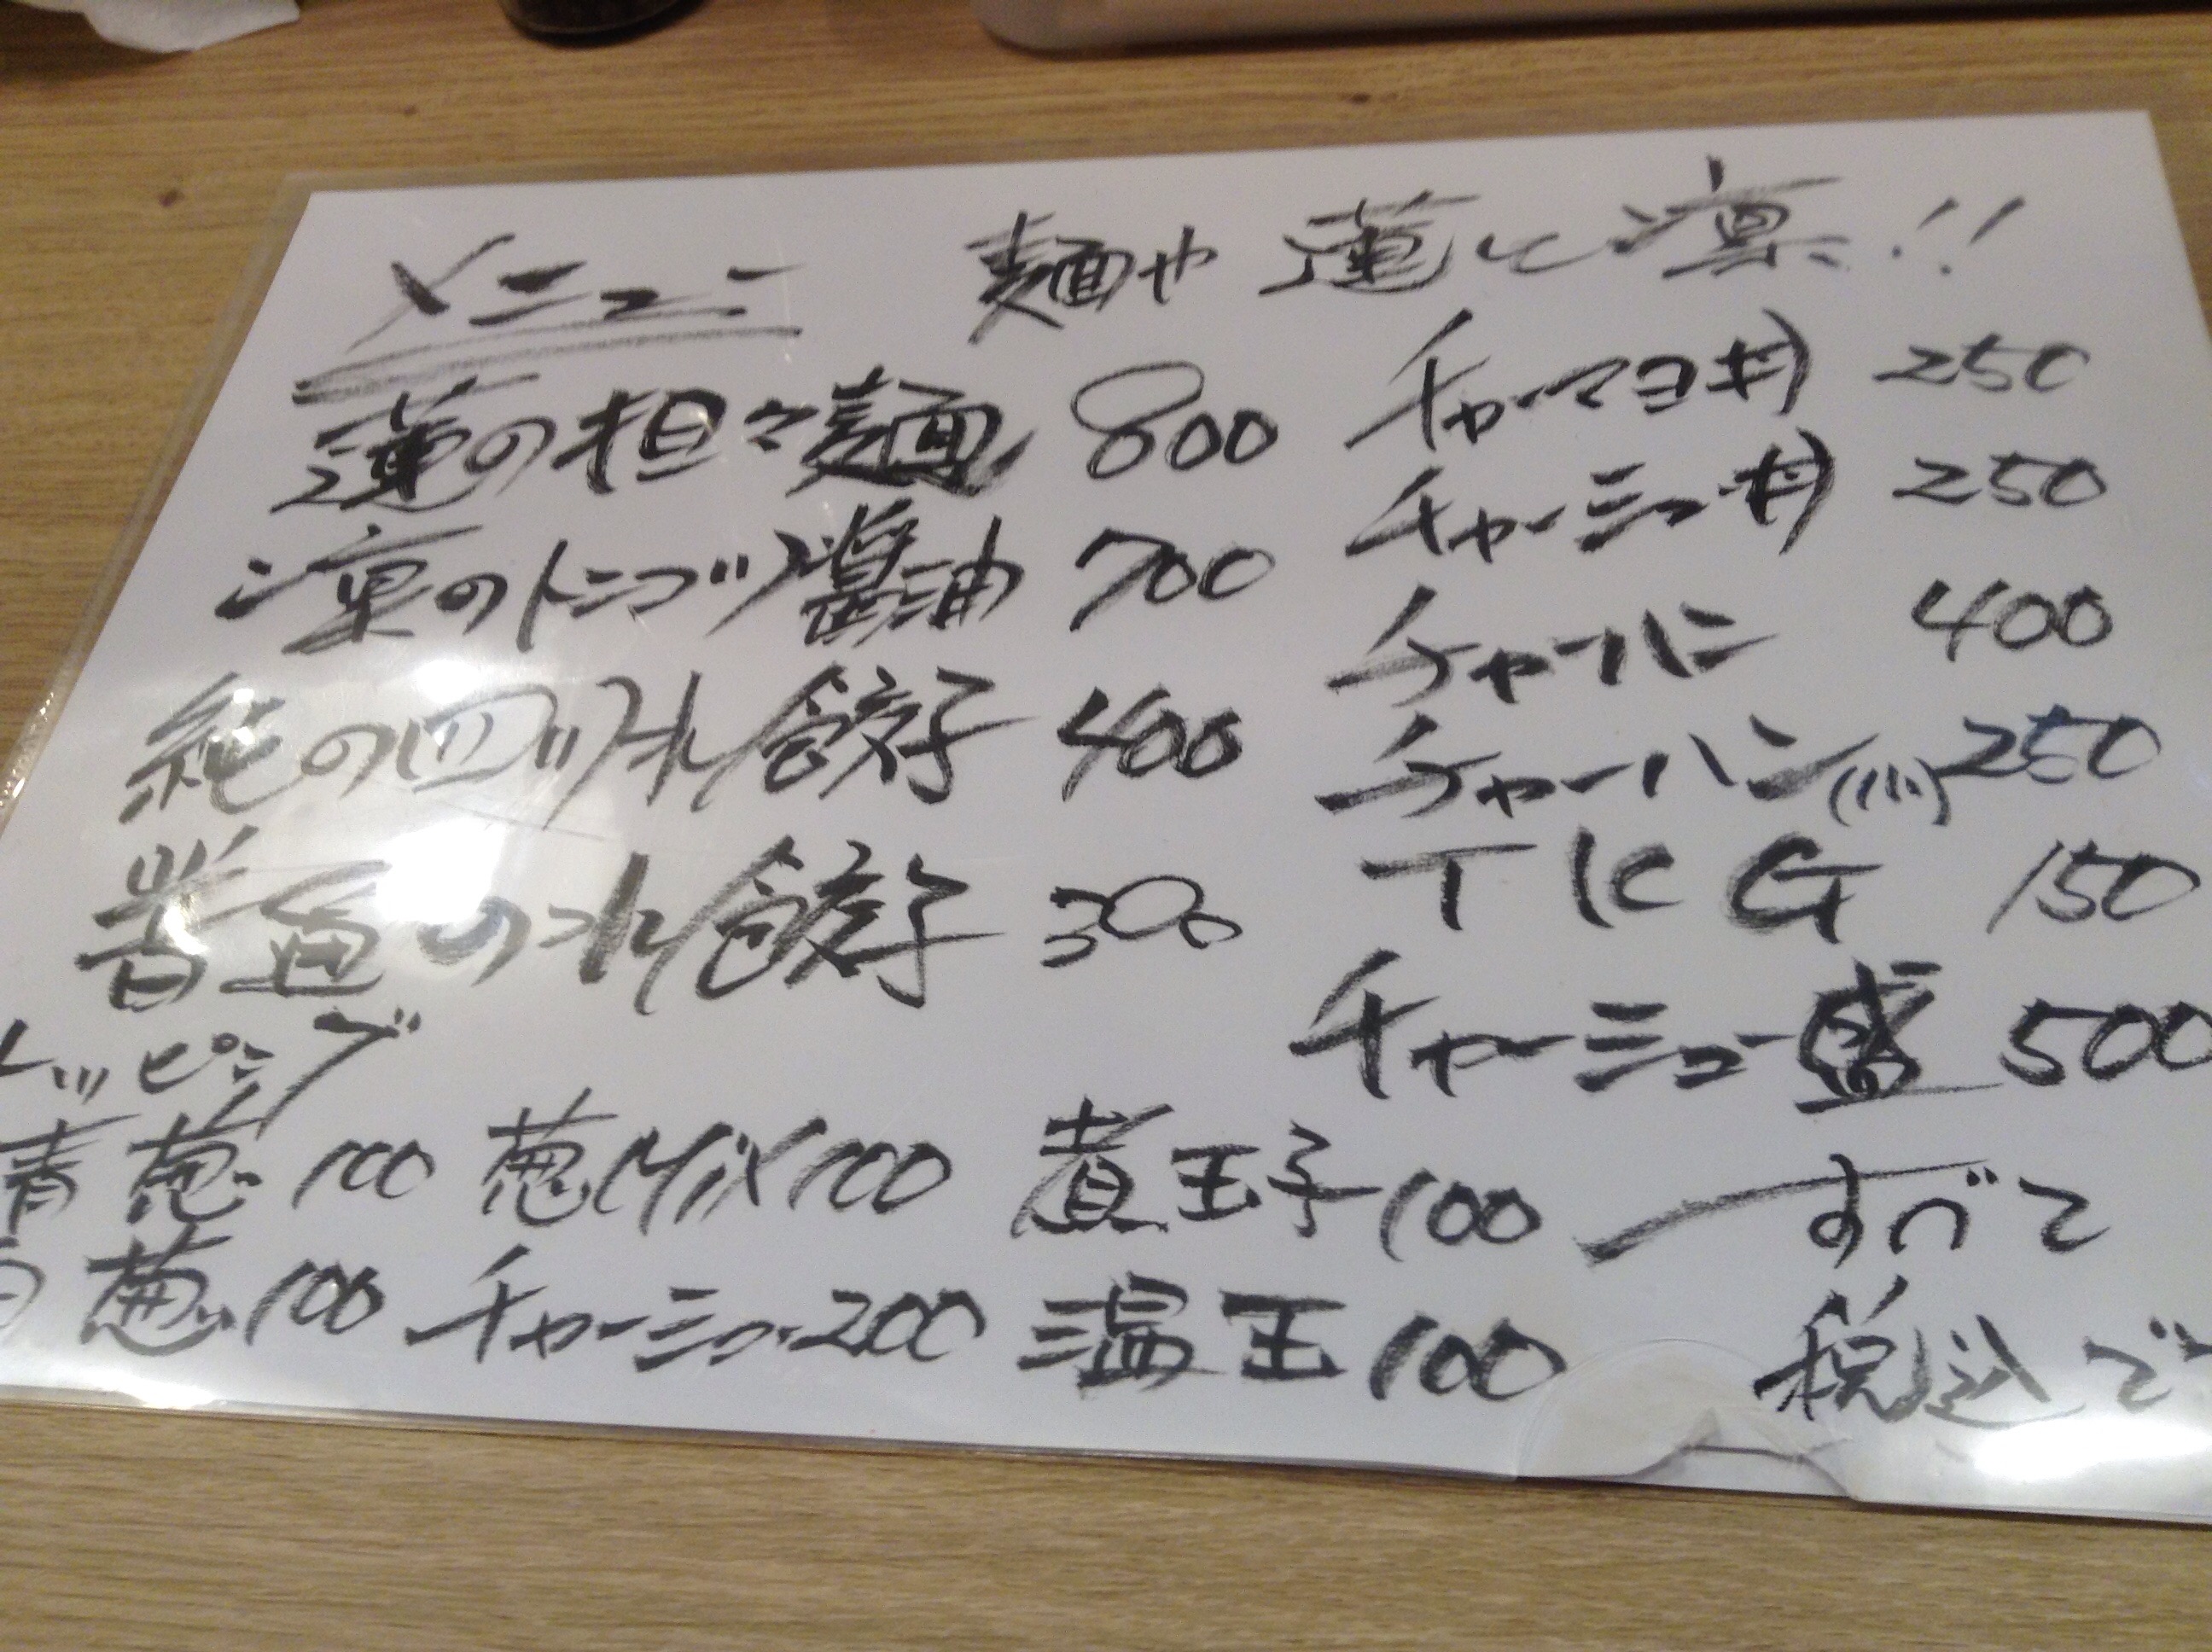 メニュー 麺や 蓮と凛!!
蓮の担々麺 800
凛のトンコツ醤油 700
純の四ツ川餃子 400
普通の水餃子 300
トッピング
青葱 100 葱Mix 100 煮玉子 100
白葱 100 チャーシュー 200 温玉 100
チャーマヨ丼 250
チャーシュー丼 250
チャーハン 400
チャーハン(小) 250
TKG 150
チャーシュー盛 500
すべて
税込で